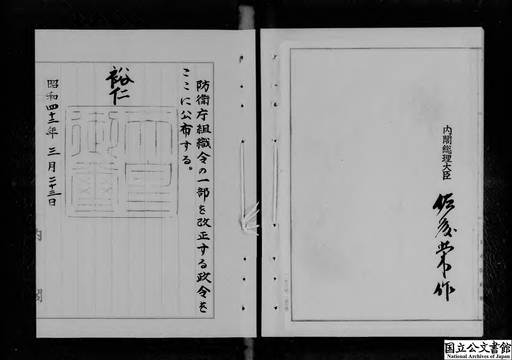 内閣総理大臣
佐藤榮作
防衛庁組織令の一部を改正する政令を
ここに公布する。
裕仁
天皇御璽
昭和四十二年三月二十三日
内閣
国立公文書館
National Archives of Japan